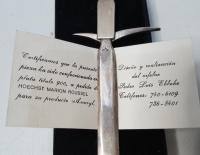 Certificamos que la presente
pieza ha sido confeccionada en
plata título 900, a pedido de
HOECHST MARION ROUSSEL
para su producto Amaryl.
Diseño y realización
del orfebre
Pedro Luis
Teléfonos: 740-6109
738-8401